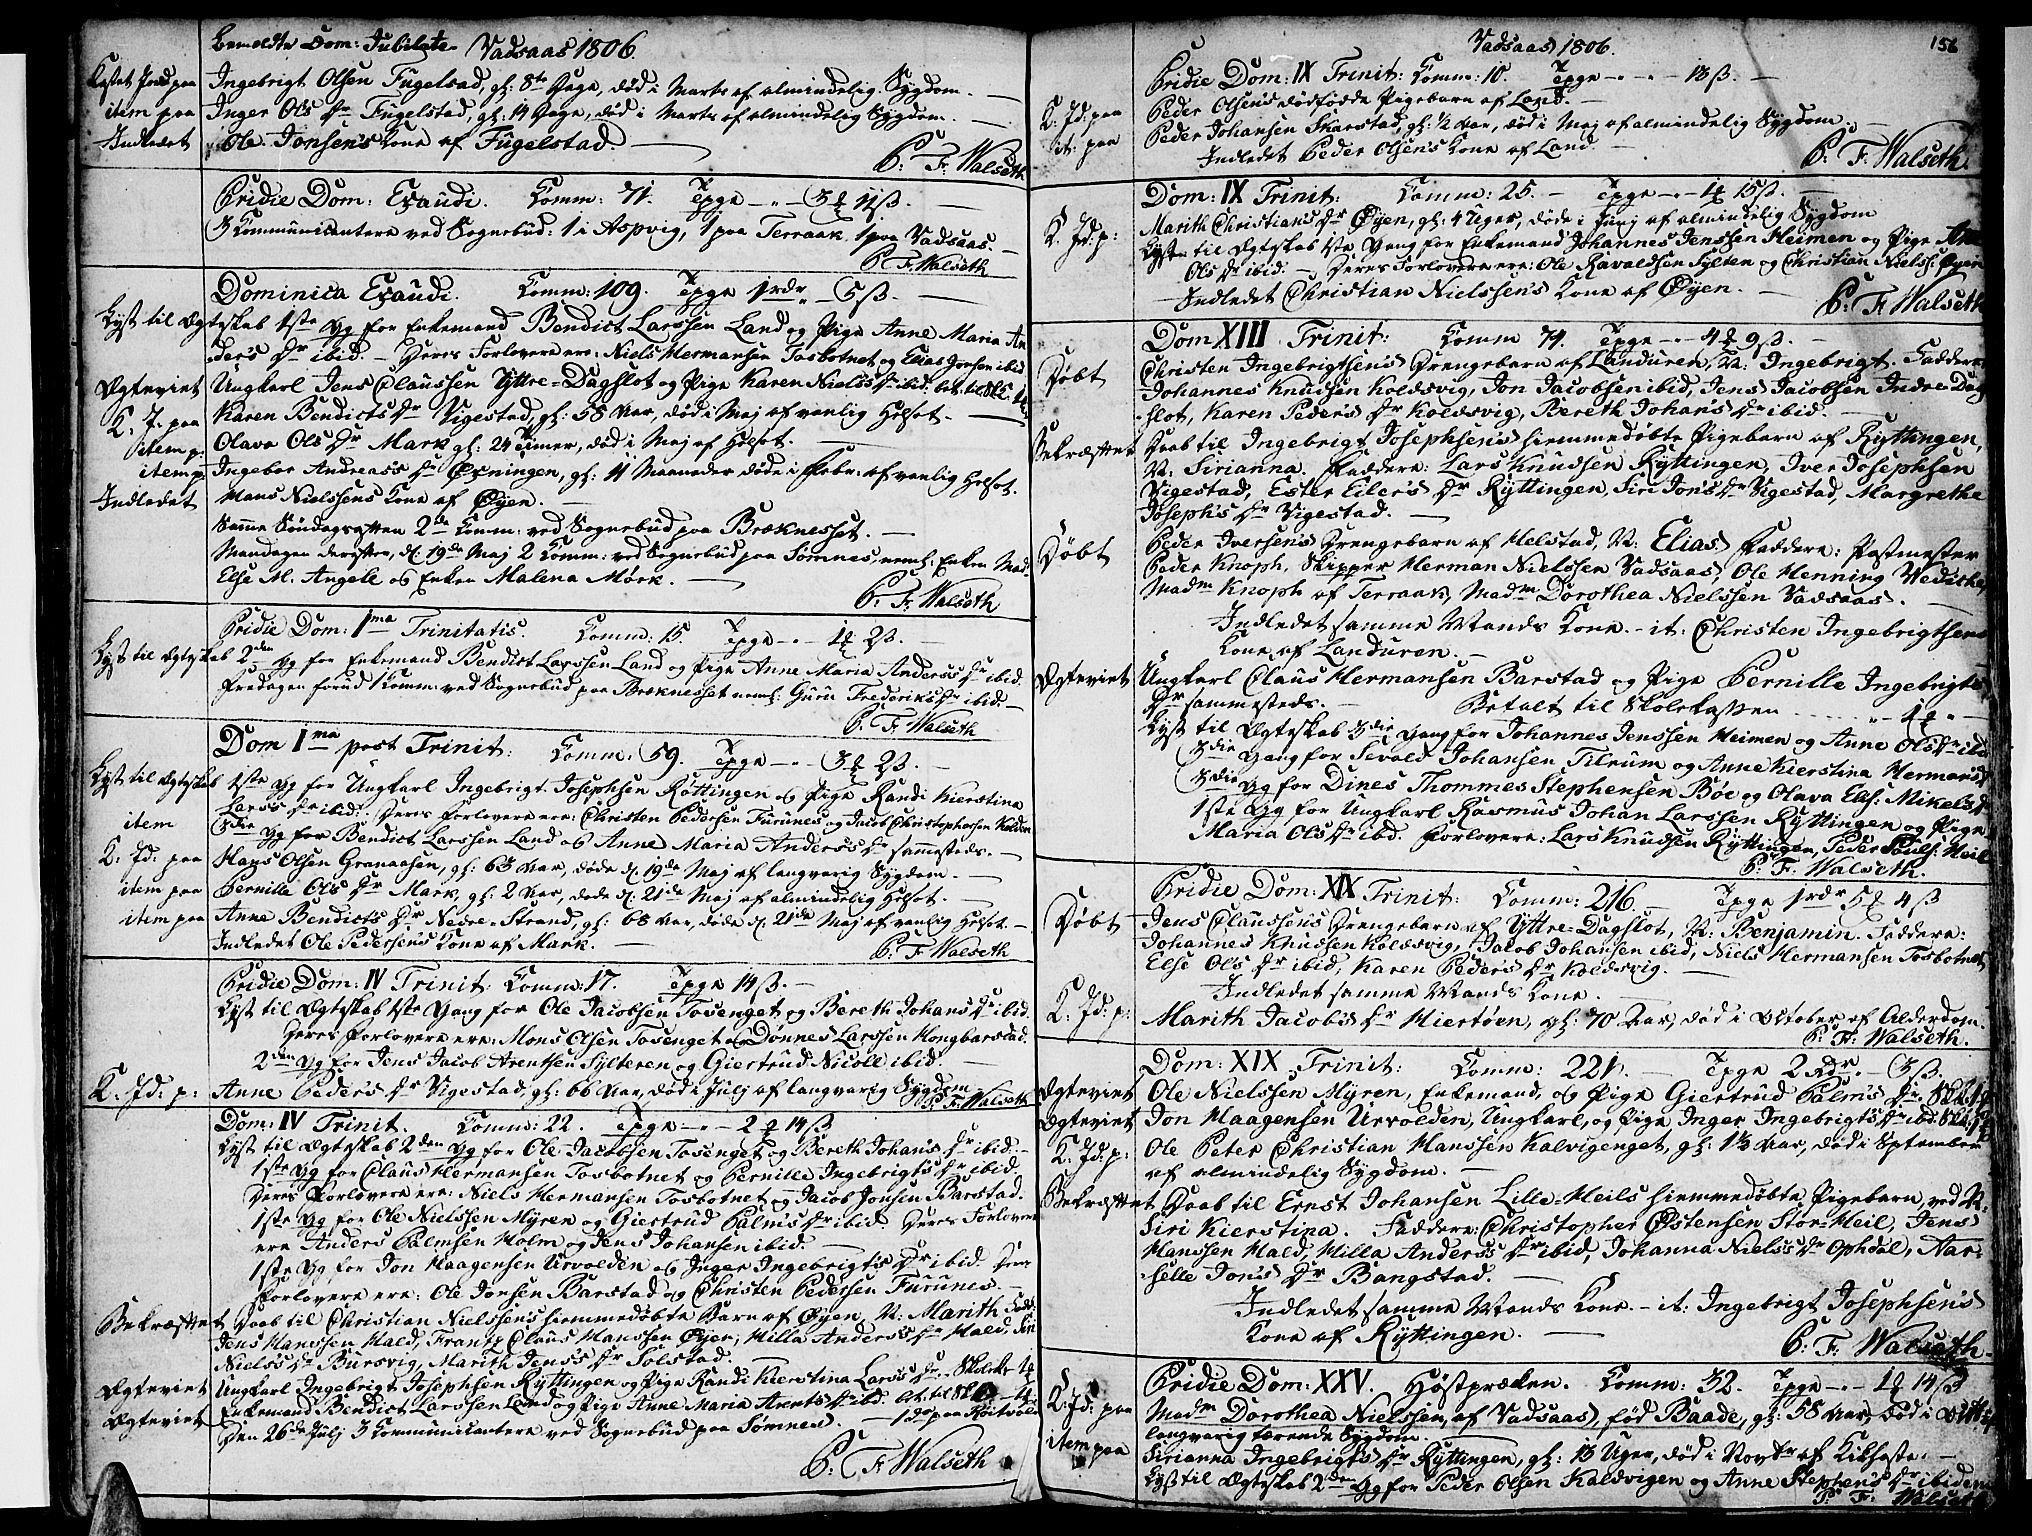 bemeldte Dom: Jubilate Vadsaas 1806.
Kastet Jord paa Ingebrigt Olsen Fügelstad, gl: 8te Dage, død i Marts af almindelig Sygdom.
item paa Inger Ols Dr Fügelstad, gl: 14 Dage, død i Marts af almindelig Sygdom.
Indledet Ole Jonsen's Kone af Fügelstad.
P: F. Walseth
Pridie Dom: Exaudi. Komm: 71. Tpge
3 Kommunicantere ved Sognebud: 1 i Aspvig, 1 paa Terraak 1 paa Vadsaas.
P. F. Walseth
Dominica Exaudi. Komm: 109. Tpge 1 rdr 5 ß.
Lyst til Ægteskab 1ste Gg for Enkemand Bendict Larssen Land og Pige Anne Maria An-
ders's Dr ibid. Deres Forlovere ere: Niels Hermansen Tosbotnet og Elias ibid
Ægteviet Ungkarl Jens Claussen Yttre-Dagslot og Pige Karen Niels's Dr ibid.
K: J. paa Karen Bendicts Dr Vigestad, gl: 58 Aar, død i Maj af vanlig Helsot.
item p: Olava Ols Dr Mark gl: 24 Timer, død i Maj af Helsot.
item p: Ingebor Andreas's Dr Øxningen, gl: 11 Maaneder døde i Febr: af vanlig Helsot.
Indledet Hans Nielssens Kone af Øyen.
Samme Søndagsaften 2de Komm: ved Sognebud paa Bræknesset.
Mandagen derefter, d: 19de Maj 2 Komm: ved Sognebud paa Sømnes, neml: Enken Mad
Else M. Angele og Enken Malena Mørk.
P: F. Walseth
Pridie Dom: 1ma Trinitatis. Komm: 15. Tpge 2ß.
Lyst til Ægteskab 2den Gg for Enkemand Bendict Larssen Land og Pige Anne Maria Anders's Dr ibid.
Fredagen forud 1 Komm: ved Sognebud paa Bræknesset neml: Guru Frederiks Dr ibid.
P: F. Walseth
Dom 1ma post Trinit: Komm: 59. Tpge 2ß.
Lyst til Ægteskab 1ste Gg for Ungkarl Ingebrigt Josephsen Røttingen og Pige Randi Kierstina
Lars's Dr ibid: Deres Forlovere ere: Christen Pedersen Furünes og Jacob Christophersen
item 3die Gg for Bendict Larssen Land og Anne Maria Anders's Dr sammesteds.
K: Jd: paa Hans Olsen Granaasen, gl: 63 Aar, døde d. 19de Maj af langvarig Sygdom.
item paa Pernille Ols Dr Mark, gl: 2 Aar, døde d. 21de Maj af almindelig Helsot.
item paa Anne Bendict's Dr Nedre-Strand, gl: 68 Aar, døde d. 21de Maj af vanlig Helsot.
Indledet Ole Pedersens Kone af Mark.
P: F. Walseth
Pridie Dom: IV Trinit: Komm: 17. Tpge 14 ß.
Lyst til Ægteskab 1ste Gang for Ole Jacobsen Tosenget og Bereth Johans Dr ibid.
Deres Forlovere ere: Mons Olsen Tosenget og Dønnes Larssen Hongbarstad.
2den Gg for Jens Jacob Arentsen Sylteren og Giertrud Nicoll ibid
K: Jd: p: Anne Peders's Dr Vigestad, gl: 66 Aar, død i Julj af langvarig Sygdom.
P: F. Walseth
Dom: IV Trinit. Komm: 22. Tpge 14 ß
Lyst til Ægteskab 2den Gg for Ole Jacobsen Tosenget og Bereth Johans Dr ibid:
1ste Gg for Claus Hermansen Tosbotnet og Pernille Ingebrigts Dr ibid.
Deres Forlovere ere: Niels Hermansen Tosbotnet og Jacob Jonsen Barstad.
1ste Gg for Ole Nielssen Myren og Giertrud Palms's Dr ibid Deres Forlovere
ere Anders Palmsen Holm og Jens Johansen ibid.
1ste Gg for Jon Haagensen Urvolden og Inger Ingebrigts Dr ibid
Forlovere ere: Ole Jonsen Barstad og Christen Pedersen Furünes.
Bekræftet Daab til Christian Nielssens hiemmedøbte Barn af Øyen, N: Marith
Jens Hanssen Hald, Frantz Claus Hanssen Øyen, Milla Anders's Dr Hald, Siri
Niels's Dr Bursvig, Marith Jens's Dr Solstad.
Ægteviet Ungkarl Ingebrigt Josephsen Ryttingen og Pige Randi Kierstina Lars's Dr
Ægteviet Enkemand Bendict Larssen Land og Pige Anne Maria Arents Dr ibid.
Den 26de Julj 3 Kommunicantere ved Sognebud paa Sømnes.
P: F. Walseth
Vadsaas 1806. 156
Pridie Dom: IX Trinit: Komm: 10. Tpge 13 ß.
K: Jd: paa Peder Olsen's dødfødde Pigebarn af Land.
it: paa Peder Johansen Skarstad, gl: 1/2 Aar, død i Maj af almindelig Sygdom.
Indledet Peder Olsen's Kone af Land.
P: F. Walseth
Dom: IX Trinit: Komm: 25. Tpge 15 ß.
K: Jd: p: Marith Christian's Dr Øyen, gl: 4 Uger, døde i Junj af almindelig Sygdom
Lyst til Ægteskab 1ste Gang for Enkemand Johannes Jenssen Heimen og Pige Anne
Ols Dr ibid. Deres Forlovere ere: Ole Ravaldsen Sylten og Christian Nielss: Øyen
Indledet Christian Nielssen's Kone af Øyen.
P: F. Walseth
Dom XIII Trinit: Komm 74. Tpge 9 ß.
Døbt Christen Ingebrigtsens Drengebarn af Landuren, N: Ingebrigt. Faddere
Johannes Knudsen Koldsvig, Jon Jacobsen ibid, Jens Jacobsen Indre Dag
slot, Karen Peder's Dr Koldsvig, Bereth Johan's Dr ibid.
Bekræftet Daab til Ingebrigt Josephsen's hiemmedøbte Pigebarn af Ryttingen,
N: Sirianna. Faddere: Lars Knudsen Ryttingen, Iver Josephsen
Vigestad, Ester Eiler's Dr Ryttingen, Siri Jon's Dr Vigestad, Margrethe
Joseph's Dr Vigestad.
Døbt Peder Iversen's Drengebarn af Helstad, N: Elias. Faddere: Postmester
Peder Knoph, Skipper Herman Nielssen Vadsaas, Ole Henning
Madm Knoph af Terraak, Madm Dorothea Nielssen Vadsaas.
Indledet samme Mands Kone. - it: Christen Ingebrigtsens
Kone af Landuren.
Ægteviet Ungkarl Claus Hermansen Barstad og Pige Pernille Ingebrigts
Dr sammesteds. Betalt til Skolekassen
Lyst til Ægteskab 3die Gang for Johannes Jenssen Heimen og Anne Ols Dr ibid
3die Gang for Sevald Johansen Tilrum og Anne Kierstina Herman's Dr
3die Gg for Dines Thommes Stephensen Bøe og Olava Els: Mikels Dr
1ste Gg for Ungkarl Rasmus Johan Larssen Ryttingen og Pige
Maria Ols Dr ibid. Forlovere: Lars Knudsen Ryttingen, Peder Pouls: Heil
P: F. Walseth.
Pridie Dom: XIX Trinit: Komm: 216 Tpge 1 rdr 4 ß
Døbt Jens Claussen's Drengebarn af Yttre-Dagslot, N: Benjamin. Faddere:
Johannes Knudsen Koldsvig, Jacob Johansen ibid, Niels Hermansen Tosbotnet,
Else Ol's Dr ibid, Karen Peder's Dr Koldsvig.
Indledet samme Mands Kone.
K: Jd: p: Marith Jacob's Dr Hiertøen, gl: 70 Aar, død i October af Alderdom.
P: F. Walseth.
Dom: XIX Trinit: Komm: 221. Tpge 2 Rdr. 3 ß.
Ægteviet Ole Nielssen Myren, Enkemand, og Pige Giertrud Palm's Dr
Ægteviet Jon Haagensen Urvolden, Ungkarl, og Pige Inger Ingebrigts Dr ibid.
K: Jd: p: Ole Peter Christian Hanssen Kalvigenget, gl: 1 1/3 Aar, død i September
af almindelig Sygdom.
Bekræftet Daab til Ernst Johansen Lille-Heils hiemmedøbte Pigebarn, ved N:
Siri Kierstina. Faddere: Christopher Østensen Stor-Heil, Jens
Hanssen Hald, Milla Anders's Dr ibid, Johanna Niels's Dr Ophdal, Aar-
selle Jon's Dr Bangstad.
Indledet samme Mands Kone. - it: Ingebrigt Josephsen's
Kone af Ryttingen.
P: F. Walseth.
Pridie Dom: XXV. Høstpræken. Komm: 32. Tpge 14 ß
K: Jd: paa Madm Dorothea Nielssen, af Vadsaas, fød Baade, gl: 58 Aar, død i
langvarig tærende Sygdom.
item paa Sirianna Ingebrigts Dr Ryttingen, gl: 13 Uger, død i Novbr af Kikhoste.
Lyst til Ægteskab 2den Gg for Peder Olsen Kaldvigen og Anne Stephen's Dr ibidem
P: F: Walseth